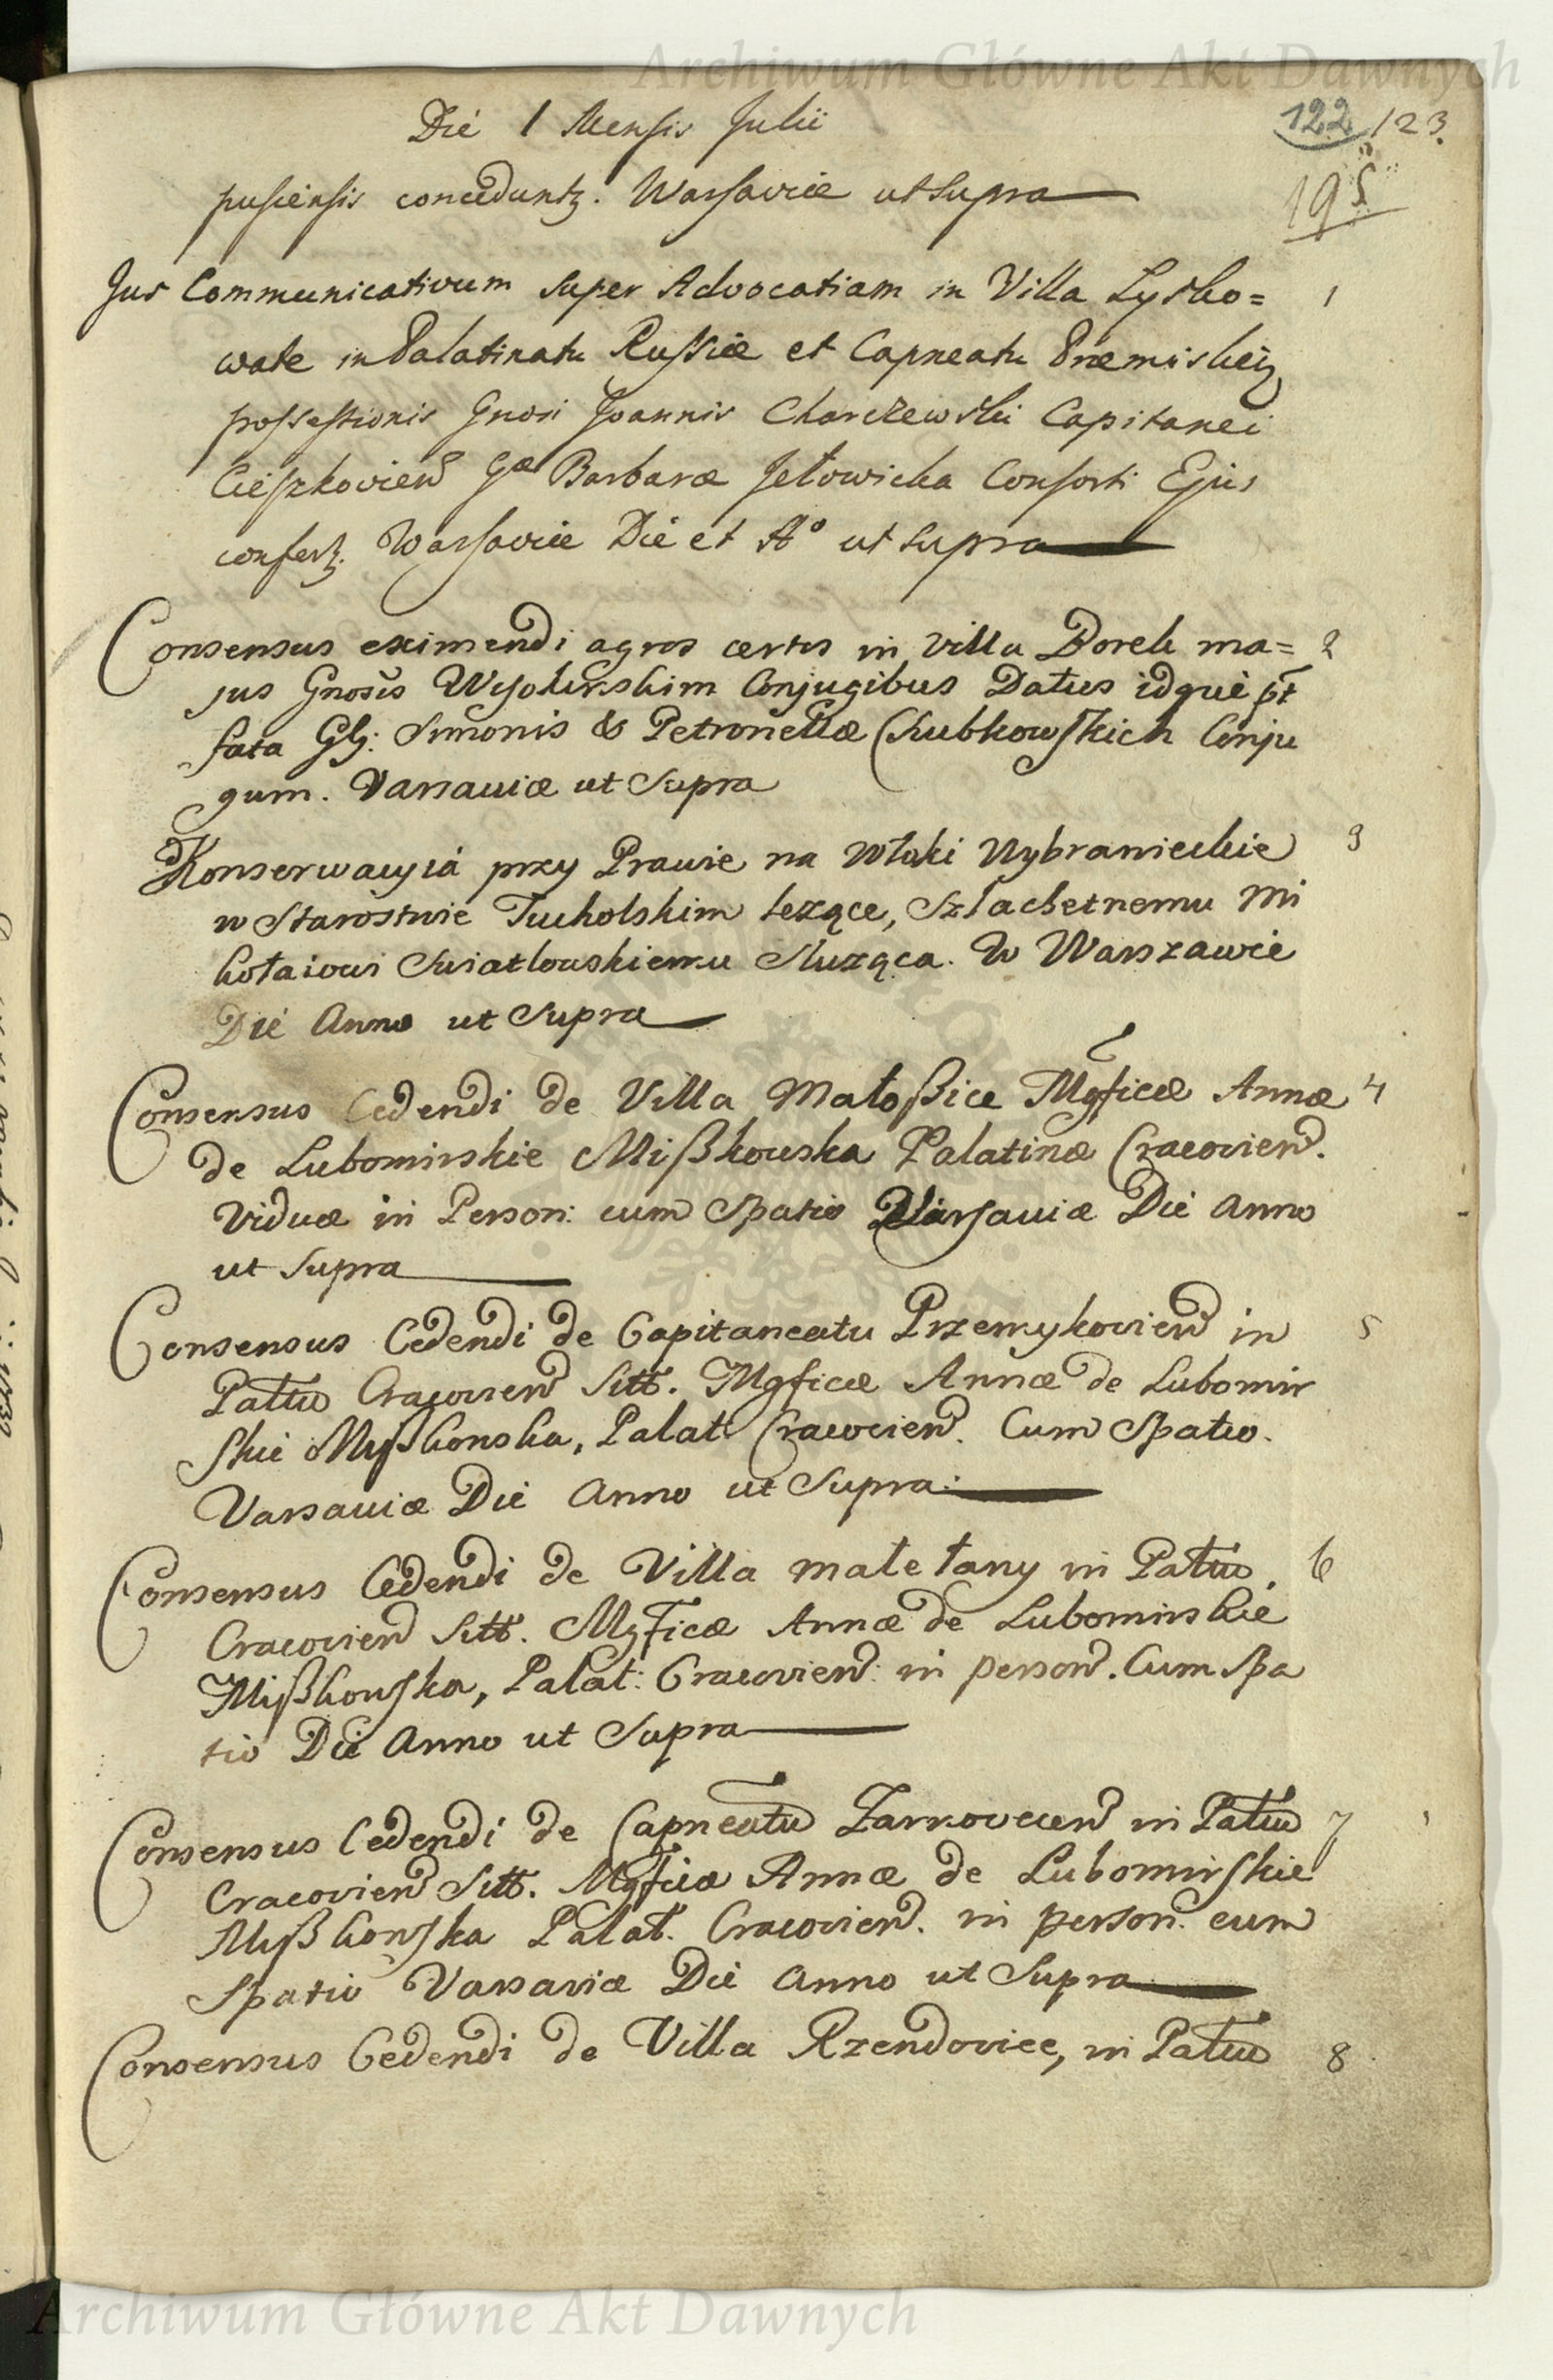 Archiwum Główne Akt Dawnych
Die 1 Mensis Julii
122 123.
195
pusciensis conceduntz. Warsaviæ ut supra
Jus Communicativum super Advocatiam in Villa Lysko= 1
wate in Palatinatu Russiæ et Capneatu Præmisliez
possessionis Gnosi Joannis Charczewski Capitanei
Cieszkovien Gæ Barbaræ Jełowicka Consorti Ejus
confertz. Warsaviæ Die et Aº ut supra
Consensus eximendi agros certos in villa Borek ma= 2
jus Gnosis Wysokinskim Conjugibus Datus idque pt
fata Gb: Simonis & Petronellæ Chubkowskich Conju
gum. Varsaviæ ut Supra
Konserwacyia przy Prawie na Włoki Wybranieckie 3
w Starostwie Tucholskim lezące, Szlachetnemu Mi
kołaiowi Swiatlowskiemu Służąca. W Warszawie
Die Anno ut Supra
Consensus Cedendi de Villa Małoßice Mgficæ Annæ 4
de Lubomirskie Mißkowska Palatinæ Cracovien.
Viduæ in Person: cum Spatio Varsaviæ Die Anno
ut Supra
Consensus Cedendi de Capitaneatu Przemykovien in 5
Pattu Cracovien Sitt. Mgficæ Annæ de Lubomir
skie Myßkonska, Palat. Cracovien. Cum Spatio.
Varsaviæ Die Anno ut Supra:
Consensus Cedendi de Villa małe łany in Pattu. 6
Cracovien Sitt. Mgficæ Annæ de Lubomirskie
Mißkowska, Palat: Cracovien: in person. Cum Spa
tio Die Anno ut Supra
Consensus Cedendi de Capneatu Zarnovecen in Pattu 7
Cracovien Sitt. Mgficæ Annæ de Lubomirskie
Myßkowska Palat. Cracovien. in person. cum
Spatio Varsaviæ Die Anno ut Supra
Consensus Cedendi de Villa Rzendovice, in Pattu 8
Archiwum Główne Akt Dawnych